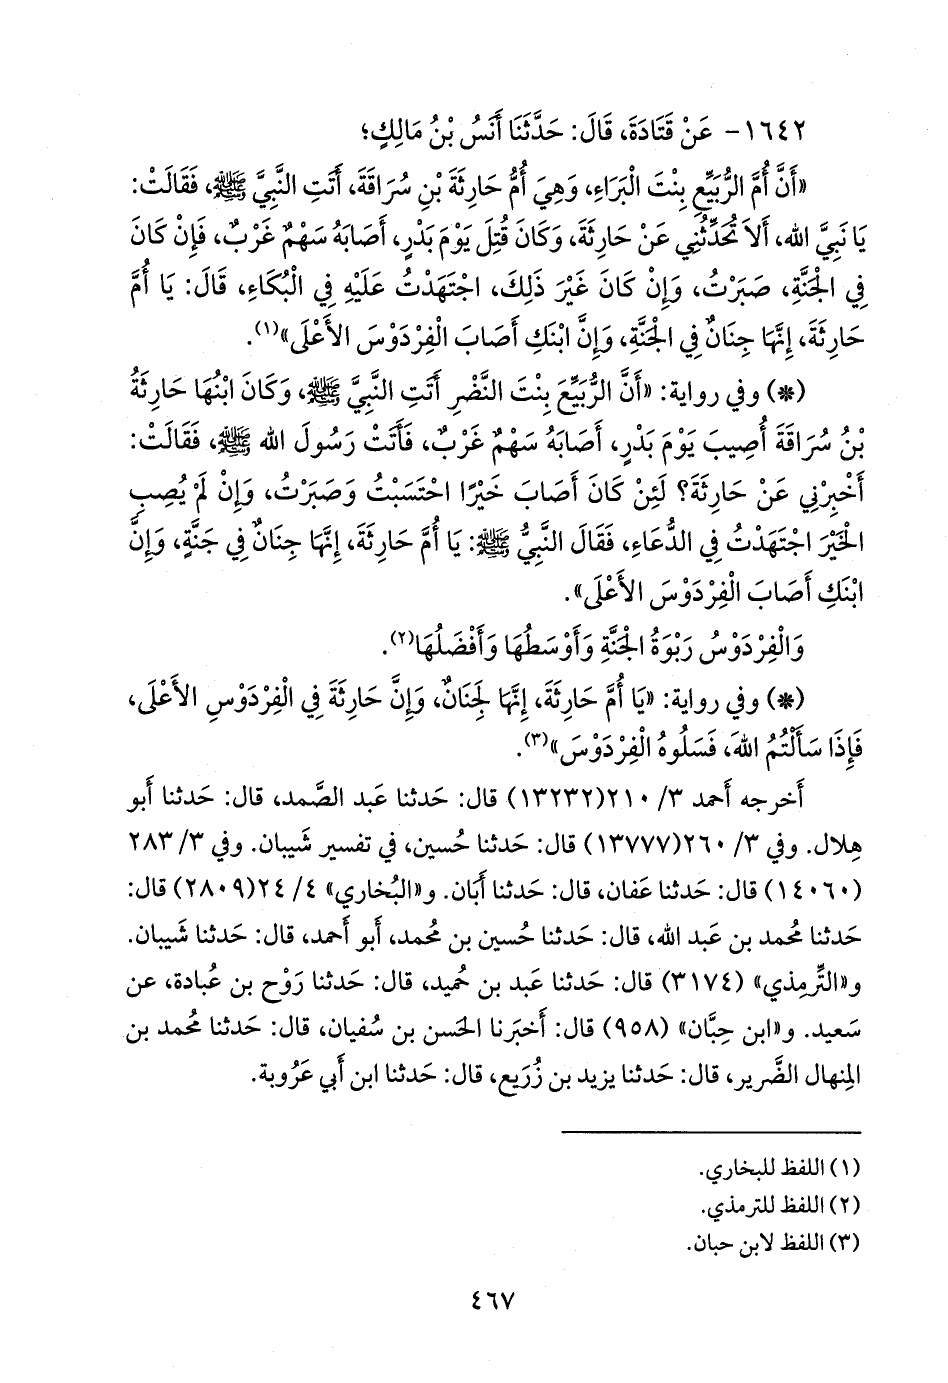 ١٦٤٢- عَنْ قَتَادَةَ، قَالَ: حَدَّثَنَا أَنَسُ بْنُ مَالِكٍ؛
«أَنَّ أُمَّ الرُّبَيِّعِ بِنْتَ الْبَرَاءِ، وَهِيَ أُمُّ حَارِثَةَ بْنِ سُرَاقَةَ، أَتَتِ النَّبِيَّ ﷺ، فَقَالَتْ:
يَا نَبِيَّ الله، أَلاَ تُحَدِّثُنِي عَنْ حَارِثَةَ، وَكَانَ قُتِلَ يَوْمَ بَدْرٍ، أَصَابَهُ سَهْمٌ غَرْبٌ، فَإِنْ كَانَ
فِي الْجَنَّةِ، صَبَرْتُ، وَإِنْ كَانَ غَيْرَ ذَلِكَ، اجْتَهَدْتُ عَلَيْهِ فِي الْبُكَاءِ، قَالَ: يَا أُمَّ
حَارِثَةَ، إِنَّهَا جِنَانٌ فِي الْجَنَّةِ، وَإِنَّ ابْنَكِ أَصَابَ الْفِرْدَوْسَ الأَعْلَى»(١).
(*) وفي رواية: «أَنَّ الرُّبَيِّعَ بِنْتَ النَّضْرِ أَتَتِ النَّبِيَّ ﷺ، وَكَانَ ابْنُهَا حَارِثَةُ
بْنُ سُرَاقَةَ أُصِيبَ يَوْمَ بَدْرٍ، أَصَابَهُ سَهْمٌ غَرْبٌ، فَأَتَتْ رَسُولَ الله ﷺ، فَقَالَتْ:
أَخْبِرْنِي عَنْ حَارِثَةَ؟ لَئِنْ كَانَ أَصَابَ خَيْرًا احْتَسَبْتُ وَصَبَرْتُ، وَإِنْ لَمْ يُصِبِ
الْخَيْرَ اجْتَهَدْتُ فِي الدُّعَاءِ، فَقَالَ النَّبِيُّ ﷺ: يَا أُمَّ حَارِثَةَ، إِنَّهَا جِنَانٌ فِي جَنَّةٍ، وَإِنَّ
ابْنَكِ أَصَابَ الْفِرْدَوْسَ الأَعْلَى».
وَالْفِرْدَوْسُ رَبْوَةُ الْجَنَّةِ وَأَوْسَطُهَا وَأَفْضَلُهَا(٢).
(*) وفي رواية: «يَا أُمَّ حَارِثَةَ، إِنَّهَا لَجِنَانٌ، وَإِنَّ حَارِثَةَ فِي الْفِرْدَوْسِ الأَعْلَى،
فَإِذَا سَأَلْتُمُ اللهَ، فَسَلُوهُ الْفِرْدَوْسَ»(٣).
أَخرجه أَحمد ٣/ ٢١٠(١٣٢٣٢) قال: حَدثنا عَبد الصَّمد، قال: حَدثنا أَبو
هِلال. وفي ٣/ ٢٦٠(١٣٧٧٧) قال: حَدثنا حُسين، في تفسير شَيبان. وفي ٣/ ٢٨٣
(١٤٠٦٠) قال: حَدثنا عَفان، قال: حَدثنا أَبَان. و«البُخاري» ٤/ ٢٤(٢٨٠٩) قال:
حَدثنا مُحمد بن عَبد الله، قال: حَدثنا حُسين بن مُحمد، أَبو أَحمد، قال: حَدثنا شَيبان.
و«التِّرمِذي» (٣١٧٤) قال: حَدثنا عَبد بن حُميد، قال: حَدثنا رَوْح بن عُبادة، عن
سَعيد. و«ابن حِبَّان» (٩٥٨) قال: أَخبَرنا الحَسن بن سُفيان، قال: حَدثنا مُحمد بن
المِنهال الضَّرير، قال: حَدثنا يزيد بن زُرَيع، قال: حَدثنا ابن أَبي عَرُوبة.
(١) اللفظ للبخاري.
(٢) اللفظ للترمذي.
(٣) اللفظ لابن حبان.
٤٦٧